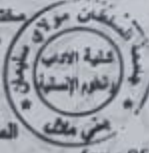 جامعة السلطان مولاي سليمان
كلية الآداب
والعلوم الإنسانية
بني ملال